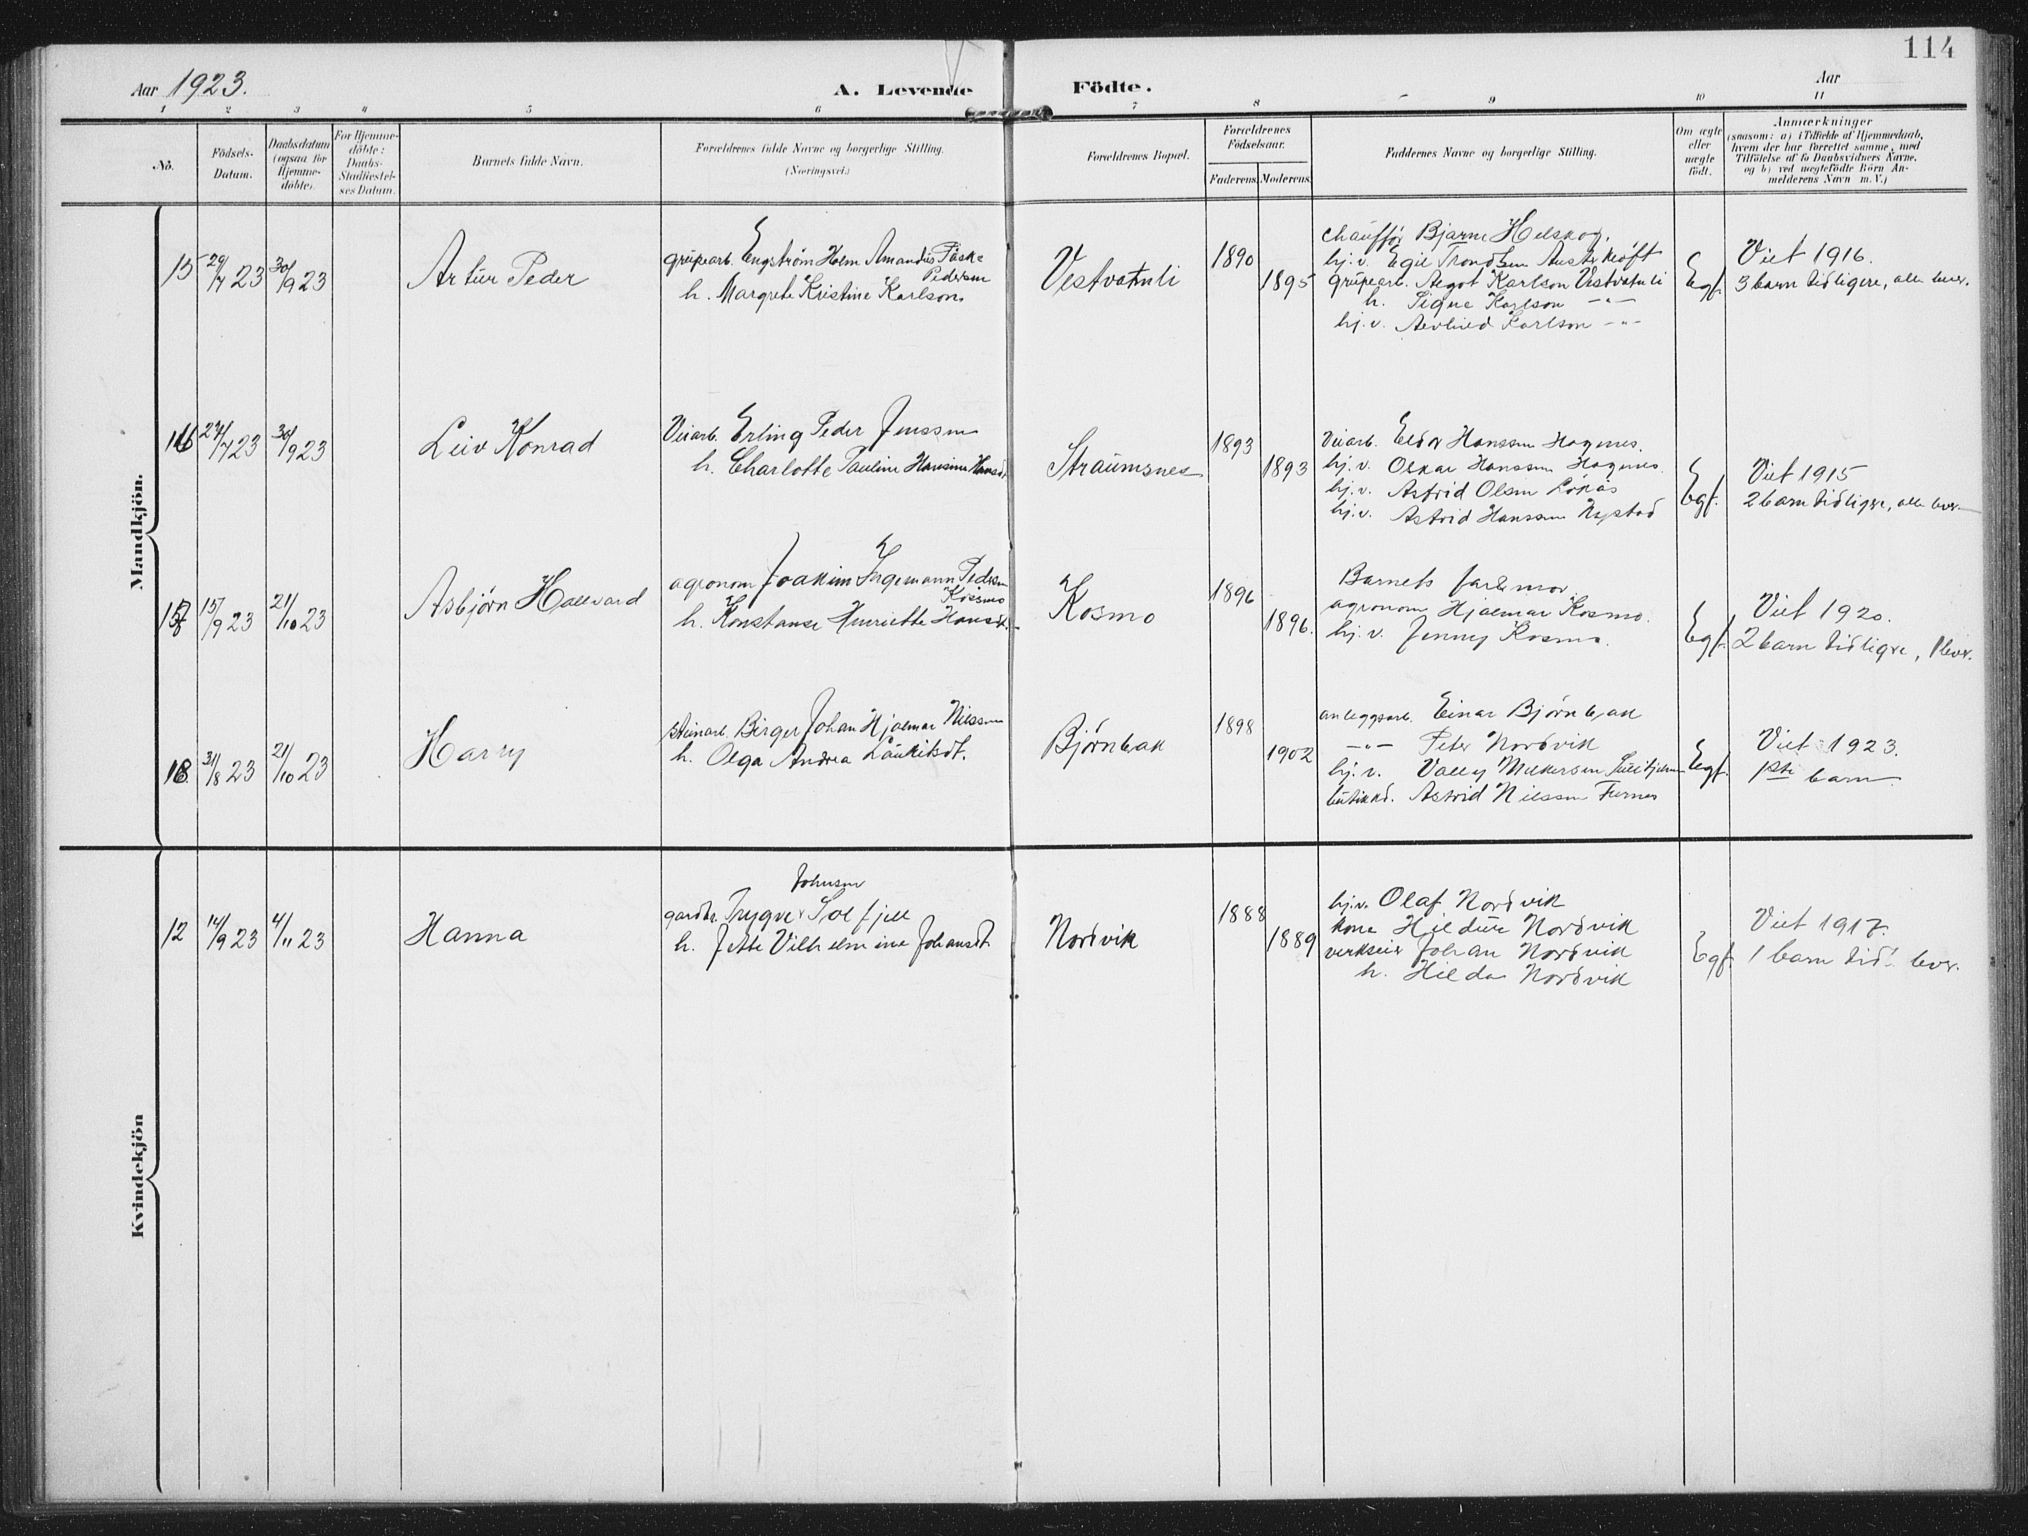 114
Aar 1923.
A. Levende Födte.
Aar
1 2 3 4 5 6 7 8 9 10 11
No.
Födsels-
Datum.
Daabsdatum
(ogsaa for
Hjemme-
döbte).
For Hjemme-
döbte:
Daabs-
Stadfæstel-
ses Datum.
Barnets fulde Navn.
Forældrenes fulde Navne og borgerlige Stilling.
(Næringsvei.)
Forældrenes Bopæl.
Forældrenes
Födselsaar.
Faderens. Moderens.
Faddernes Navne og borgerlige Stilling.
Om ægte
eller
uægte
födt.
Anmærkninger
(saasom: a) i Tilfælde af Hjemmedaab,
hvem der har forrettet samme, med
Tilföielse af to Daabsvidners Navne,
og b) ved uægtefödte Börn An-
melderens Navn m. V.)
Mandkjön.
15
29/7 23
30/9 23
Artur Peder
grubearb. Engstrøm Holm Amandus Påske
Pedersen
h. Margrete Kristine Karlson.
Vestvatnli
1890
1895
chauffør Bjarne Helskog.
hj.v. Egil Trondsen
grubearb. Aegot Karlson Vestvatnli
h. Signe Karlson -"-
hj.v. Karlson -"-
Egf.
Viet 1916.
3 barn tidligere, alle lever.
16
27/7 23
30/9 23
Leiv Konrad
Veiarb. Erling Peder Jenssen
h. Charlotte Pauline Hansine Hansdt.
Straumsnes
1893
1893
Veiarb. Hanssen Hagenes.
hj.v. Oskar Hanssen Hagenes.
hj.v. Astrid Olsen Løkås
hj.v. Astrid Hanssen Nystad
Egf.
Viet 1915
2 barn tidligere, alle lever
17
15/9 23
21/10 23
Asbjørn Hallvard
agronom Joakim Ingemann Pedersen
Kosmo
h. Konstanse Henriette Hansdt.
Kosmo
1896
1896.
Barnets farmor
agronom Hjalmar Kosmo.
hj.v. Jenny Kosmo.
Egf.
Viet 1920.
2 barn tidligere, 1 lever.
18
31/8 23
21/10 23
Harry
steinarb. Birger Johan Hjalmar Nilssen
h. Olga Andrea Lauritsdt.
Bjørnbak
1898
1902
anleggsarb. Einar Bjørnbak
-"- Peter Nordvik
hj.v. Vally Mikkersen Sulitjelma
butikkd. Astrid Nilssen Furnes
Egf.
Viet 1923.
1ste barn
Kvindekjön
12
14/9 23
4/11 23
Hanna
Johnsen
gardbr. Trygve Solfjell
h. Jette Vilhelmine Johansdt.
Nordvik
1888
1889
hj.v. Olaf Nordvik
kone Hildur Nordvik
verkseier Johan Nordvik
h. Hilda Nordvik
Egf.
Viet 1917.
1 barn tidl. lever.